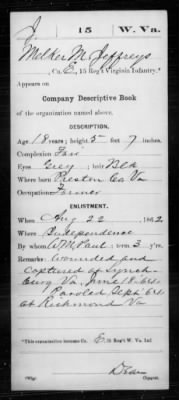 J 15 W. Va.
Milker M. Jeffreys
, Co. E, 15 Reg't Virginia Infantry.*
Appears on
Company Descriptive Book
of the organization named above.
DESCRIPTION.
Age 18 years; height 5 feet 7 inches.
Complexion Fair
Eyes Grey; hair Blk
Where born Preston Co Va
Occupation Farmer
ENLISTMENT.
When Aug 22, 1862.
Where Independence
By whom W M Paul; term 3 y'rs.
Remarks: Wounded and
captured at Lynch-
burg Va. June 18-64
Paroled Sept 64
at Richmond Va
*This organization became Co. E, 15 Reg't W. Va. Inf.
Copyist.